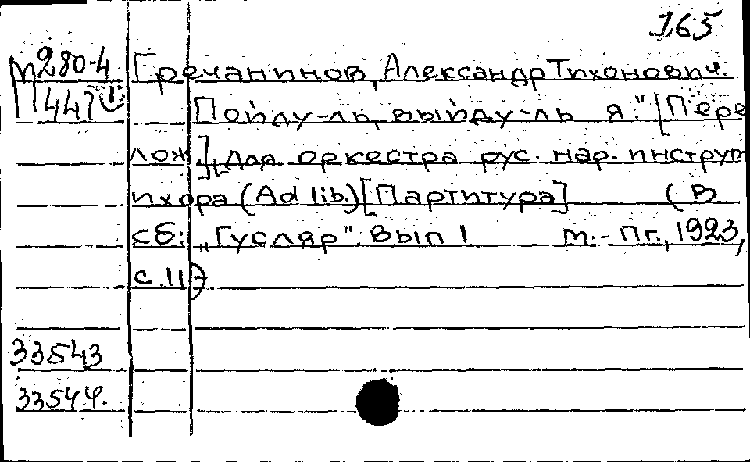 165
М280-4 Гречанинов, Александр Тихонович.
447 Пойду-ль, выйду-ль я." [Пере
лож.] для оркестра рус. нар. инструм
и хора (Ad lib.) [Партитура] (В
сб: „Гусляр". Вып 1 М.-Пг., 1923,
с.11)
33543
33544.